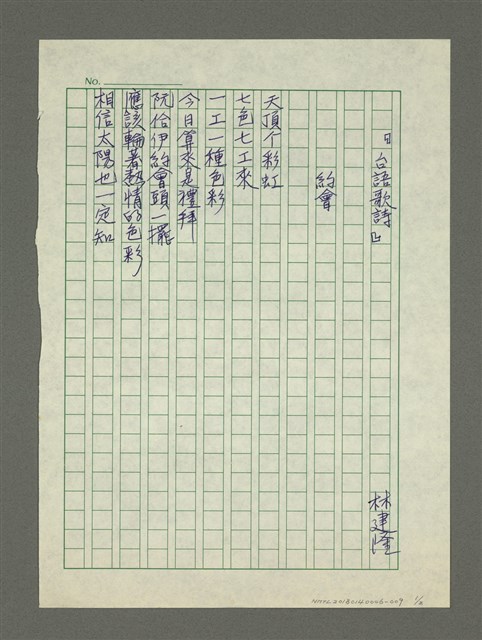 No.
『台語歌詩』
林建隆
約會
天頂个彩虹
七色七工來
一工一種色彩
今日算來是禮拜
阮佮伊約會頭一擺
應該輪著熱情的色彩
相信太陽也一定知